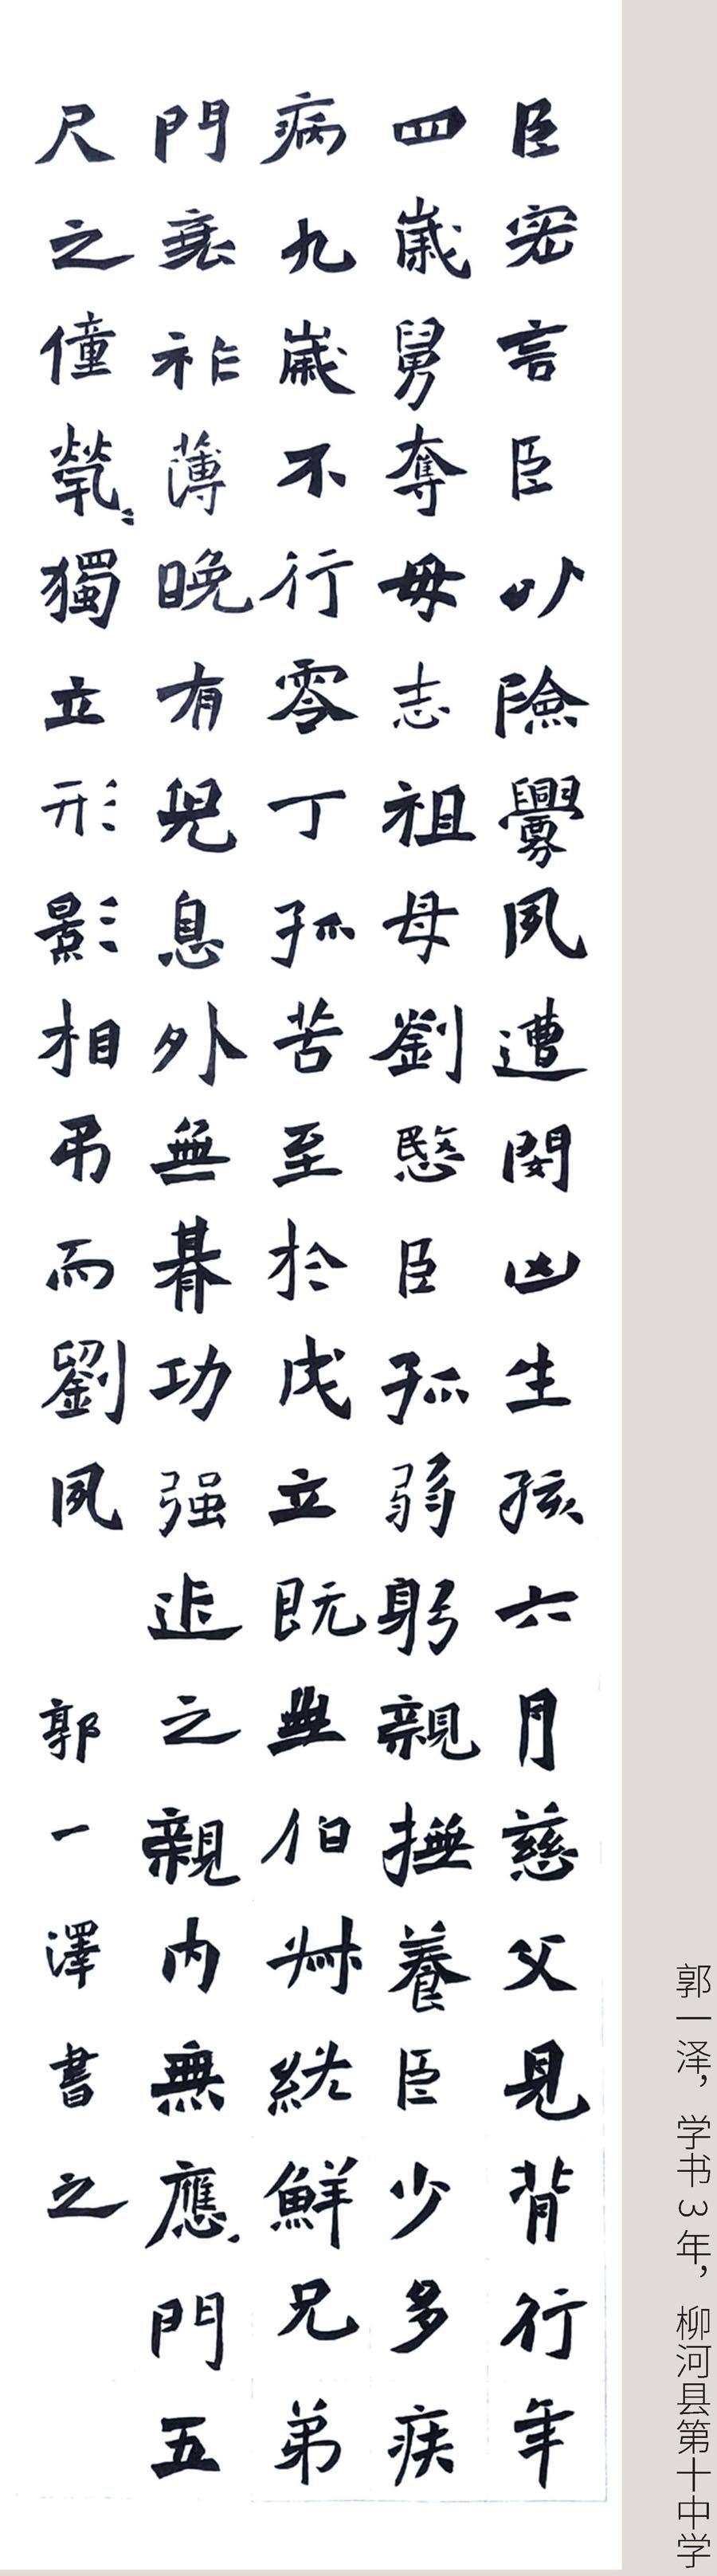 臣密言臣以險釁夙遭閔凶生孩六月慈父見背行年
四歲舅奪母志祖母劉愍臣孤弱躬親撫養臣少多疾
病九歲不行零丁孤苦至於成立既無伯叔終鮮兄弟
門衰祚薄晚有兒息外無朞功强近之親内無應門五
尺之僮煢〻獨立形影相弔而劉夙
郭一澤書之
郭一泽，学书3年，柳河县第十中学